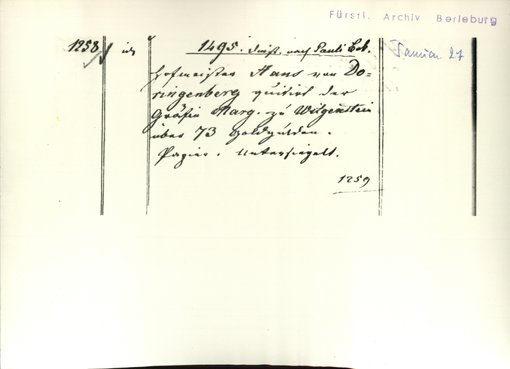 Fürstl. Archiv Berleburg
1258
1495. Dinst. nach Pauli Bek.
Januar 27
Hofmeister Hans von Do-
ringenberg quitirt der
Gräfin Marg. zu Witgenstein
über 73 Goldgulden.
Papier. Untersiegelt.
1259